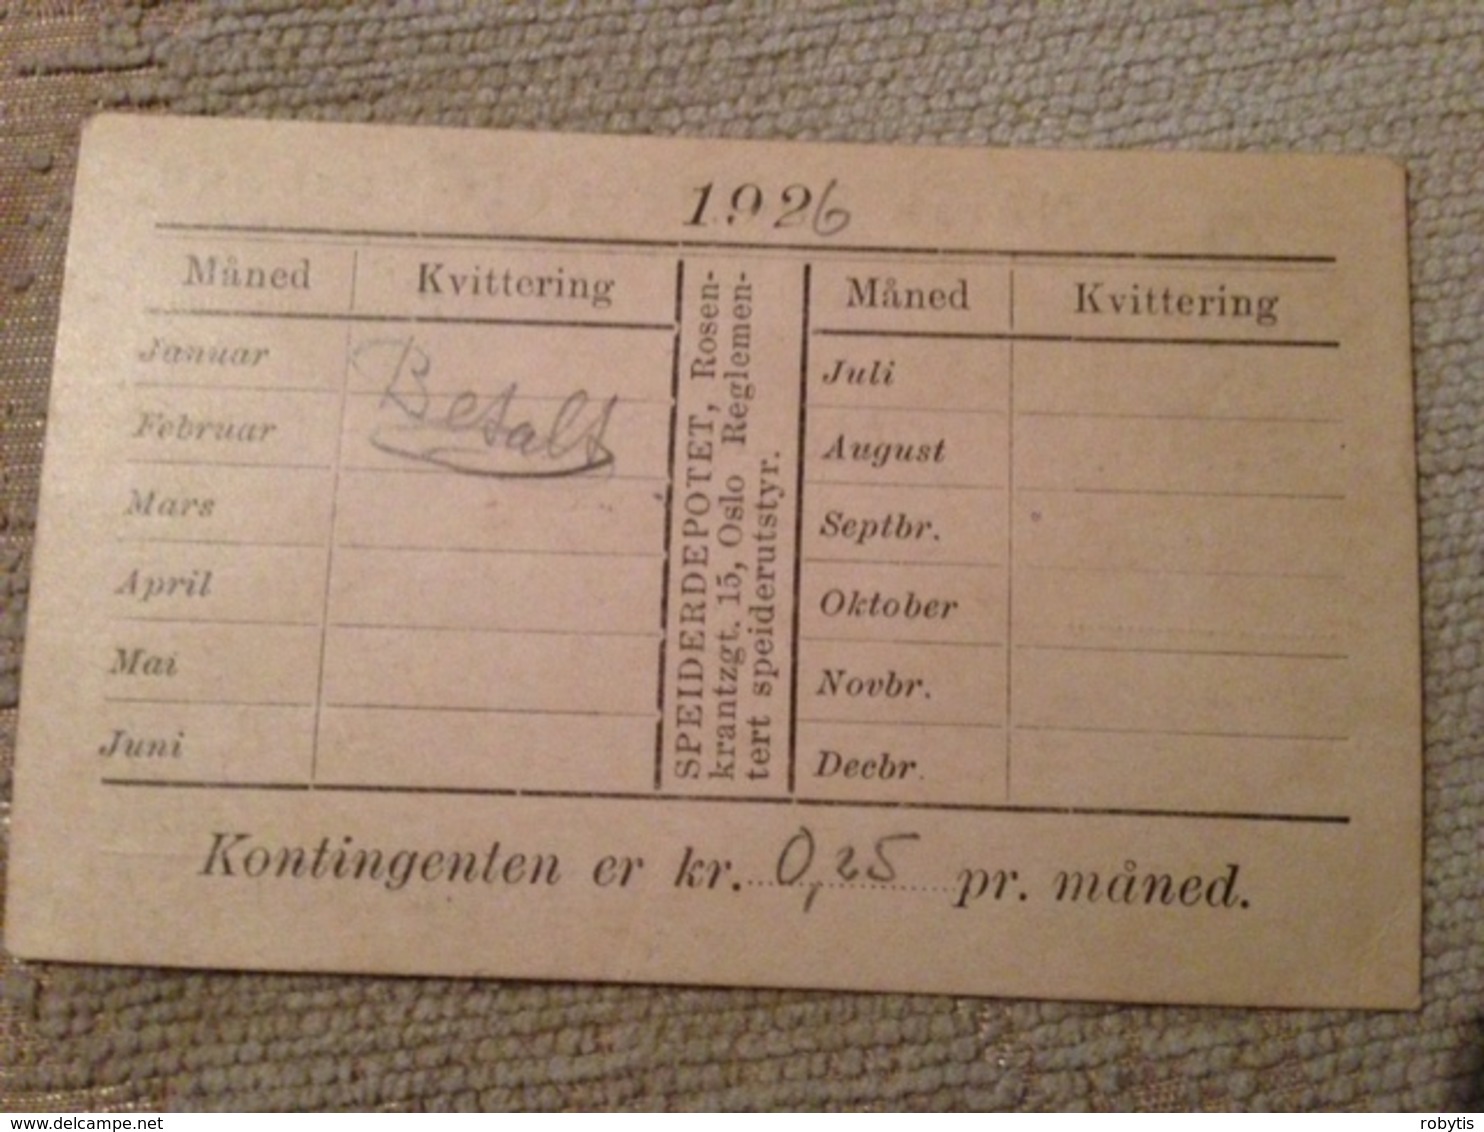 1926
Måned Kvittering
Januar Betalt
Februar
Mars
April
Mai
Juni
SPEIDERDEPOTET, Rosen-
krantzgt. 15, Oslo Reglemen-
tert speiderutstyr.
Måned Kvittering
Juli
August
Septbr.
Oktober
Novbr.
Decbr.
Kontingenten er kr. 0,25 pr. måned.
delcampe.net
robytis